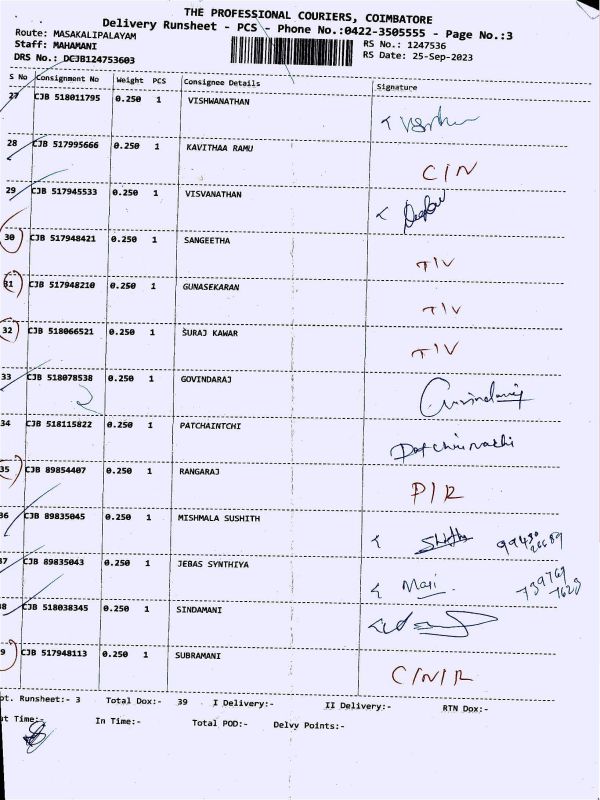 THE PROFESSIONAL COURIERS, COIMBATORE
Delivery Runsheet - PCS - Phone No.:0422-3505555 - Page No.:3
Route: MASAKALIPALAYAM
Staff: MAHAMANI RS No.: 1247536
DRS No.: DCJB124753603 RS Date: 25-Sep-2023
S No Consignment No Weight PCS Consignee Details Signature
27 CJB 518011795 0.250 1 VISHWANATHAN
28 CJB 517995666 0.250 1 KAVITHAA RAMU C/N
29 CJB 517945533 0.250 1 VISVANATHAN
30 CJB 517948421 0.250 1 SANGEETHA T/V
31 CJB 517948210 0.250 1 GUNASEKARAN T/V
32 CJB 518066521 0.250 1 SURAJ KAWAR T/V
33 CJB 518078538 0.250 1 GOVINDARAJ
34 CJB 518115822 0.250 1 PATCHAINTCHI
35 CJB 89854407 0.250 1 RANGARAJ P/R
36 CJB 89835045 0.250 1 MISHMALA SUSHITH
37 CJB 89835043 0.250 1 JEBAS SYNTHIYA Mari
38 CJB 518038345 0.250 1 SINDAMANI
9 CJB 517948113 0.250 1 SUBRAMANI C/N/R
pt. Runsheet:- 3 Total Dox:- 39 I Delivery:- II Delivery:- RTN Dox:-
ut Time:- In Time:- Total POD:- Delvy Points:-